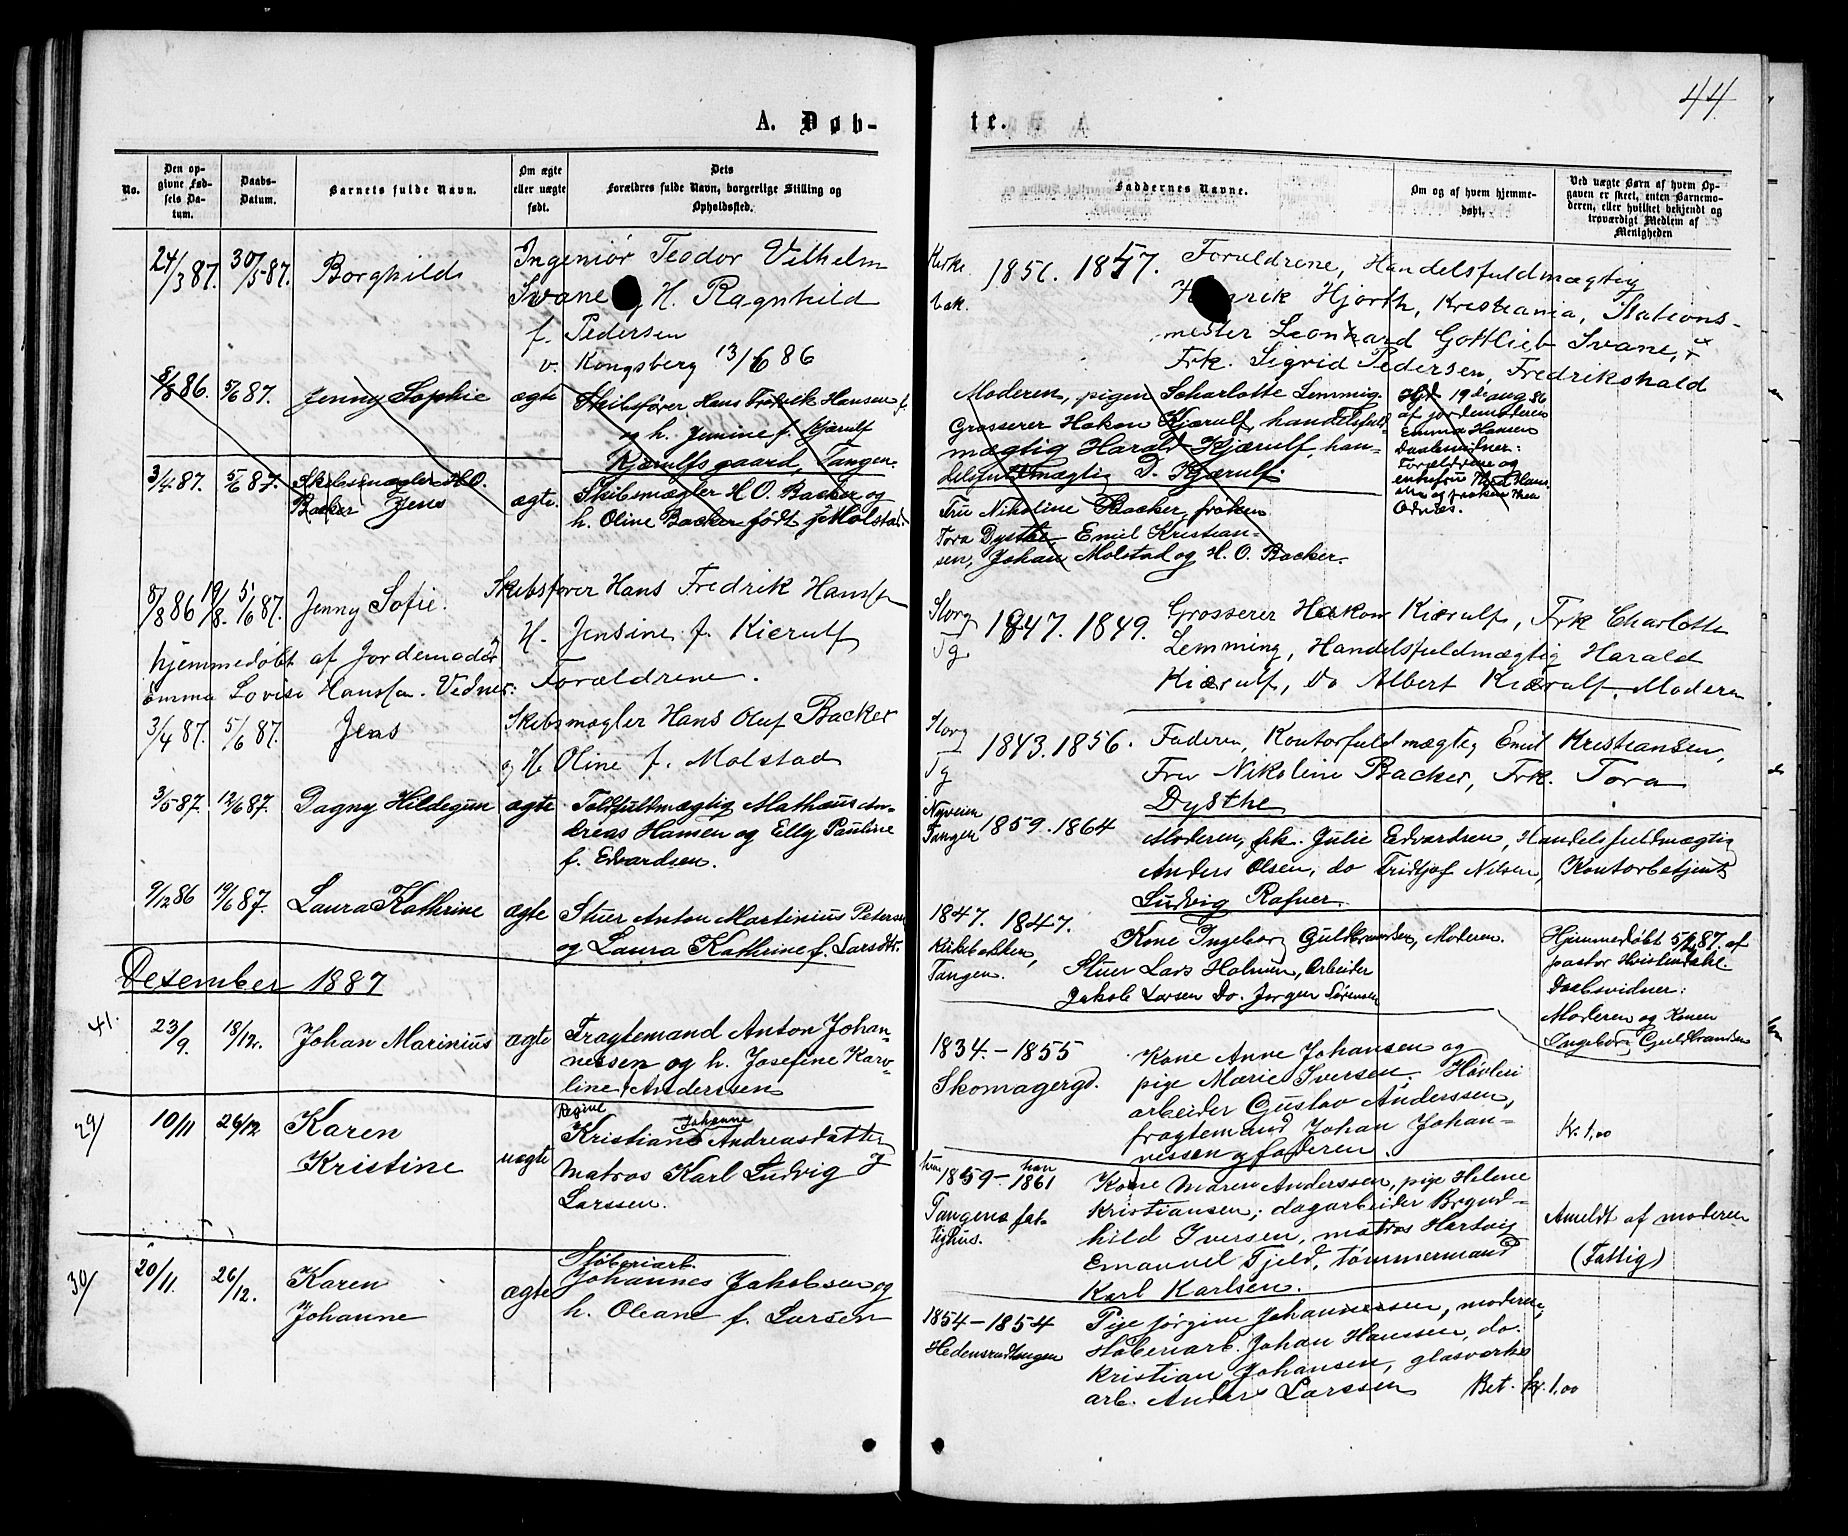 44
A. Døb-
te.
No.
Den op-
givne Fød-
sels Da-
tum.
Daabs-
Datum.
Barnets fulde Navn.
Om ægte
eller uægte
født.
Dets
Forældres fulde Navn, borgerlige Stilling og
Opholdssted.
Faddernes Navne.
Om og af hvem hjemme-
døbt.
Ved uægte Børn af hvem Op-
gaven er skeet, enten Barnemo-
deren, eller hvilket bekjendt og
troværdigt Medlem af
Menigheden
24/3 87. 30/5 87. Borghild
Ingeniør Teodor Vilhelm
Svane og H. Ragnhild
f. Pedersen
v. Kongsberg 13/6 86
Kirke
bak.
1856. 1857.
Forældrene, Handelsfuldmægtig
Henrik Hjorth, Kristiania, Stations-
mester Leonhard Gottlieb Svane,
Frk. Sigrid Pedersen, Fredrikshald
8/8 86. 5/6 87. Jenny Sophie ægte
Skibsfører Hans Fredrik Hansen
og h. Jensine f. Kjærulf
Kjærulfsgaard, Tangen.
Moderen, pigen Scharlotte Lemming.
Grosserer Hakon Kjærulf, handelsfuld-
mægtig Harald Kjærulf, han-
delsfuldmægtig D. Kjærulf.
Hjd. 19de aug 86
af jordemoderen
Emma Hansen
Daabsvidner:
Forældrene og
3/4 87. 5/6 87. Skibsmægler H.O.
Backer Jens ægte.
Skibsmægler H O. Backer og
h. Oline Backer født Molstad.
Fru Nikoline Backer, frøken
Tora Dysthe, Emil Kristian-
sen, Johan Molstad og H. O. Backer.
8/8 86 19/8. 5/6 87. Jenny Sofie.
Skibsfører Hans Fredrik Hansen
H. Jensine f. Kierulf
hjemmedøbt af Jordemoder
Emma Lovise Hansen. Vidner: Forældrene.
Storg
Tg.
1847. 1849.
Grosserer Hakon Kiærulf, Frk Charlotte
Lemming, Handelsfuldmægtig Harald
Kiærulf, Do Albert Kiærulf, Moderen
3/4 87. 5/6 87. Jens
Skibsmægler Hans Oluf Backer
og H. Oline f. Molstad
Storg
Tg
1843. 1856.
Faderen, Kontorfuldmægtig Emil Kristiansen,
Fru Nikoline Backer, Frk. Tora
Dysthe
3/5 87. 12/6 87. Dagny Hildegun ægte
Toldfuldmægtig Mathæus An-
dreas Hansen og Elly Pauline
f. Edvardsen.
Nyveien
Tangen
1859. 1864
Moderen, frk. Julie Edvardsen, Handelsfuldmægtig
Anders Olsen, do Fridtjof Nilsen, Kontorbetjent
Ludvig Rafner.
9/12 86 19/6 87. Laura Kathrine ægte
Stuer Anton Martinius Petersen
og Laura Kathrine f. Larsdtr.
1847. 1847.
Kirkebakken,
Tangen.
Kone Ingeborg Guldbrandsen, Moderen.
Stuer Lars Holmen, Arbeider
Jakob Larsen Do. Jørgen Sørensen
Hjemmedøbt 5/2 87. af
pastor Hvistendahl.
Daabsvidner:
Moderen og Konen
Ingeborg Guldbrandsen
Desember 1887
41. 23/9. 18/12. Johan Marinius ægte
Fragtemand Anton Johan-
nessen og h. Josefine Karo-
line Anderssen
1834. - 1855
Skomagergd.
Kone Anne Johansen og
pige Marie Iversen. Høvleri
arbeider Gustav Anderssen,
fragtemand Johan Johan-
nessen og faderen.
Kr. 1,00
29/ 10/11 26/12 Karen
Kristine uægte
Regine
Johanne
Kristiane Andreasdatter
Matros Karl Ludvig J
Larssen.
hun 1859 - han 1861
Tangens fat-
tighus.
Kone Maren Anderssen, pige Helene
Kristiansen; dagarbeider Brynd-
hild Iversen, matros Hartvig
Emanuel Fjeld, tømmermand
Karl Karlsen.
Anmeldt af moderen
(Fattig)
30/ 20/11. 26/12. Karen
Johanne ægte
Støberiarb.
Johannes Jakobsen og
h. Oleane f. Larsen
1854 - 1854
Hedensrudtangen
Pige Jørgine Johannessen, moderen,
støberiarb. Johan Hanssen, do.
Kristian Johansen, glasverks
arb. Anders Larssen Bet. kr. 1,00